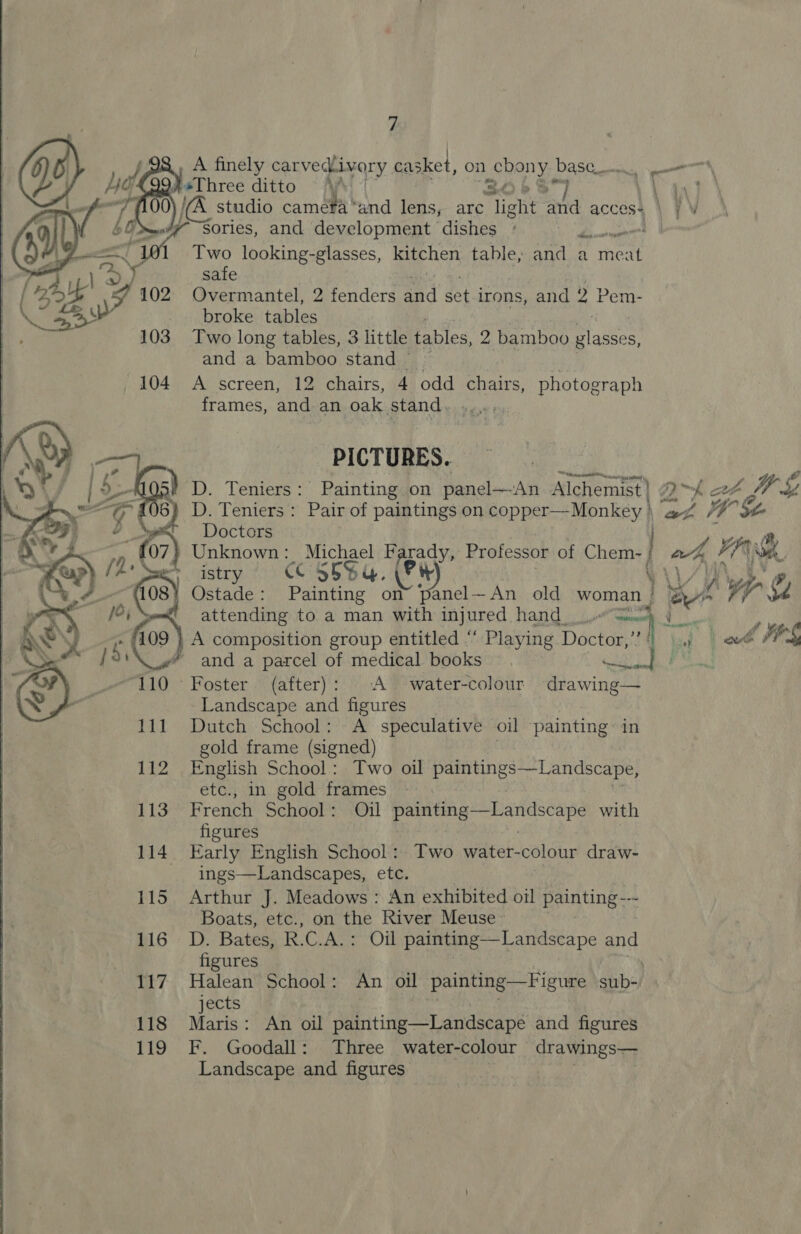 7
98 A finely carved ivory casket, on ebony base
99 Three ditto
100 A studio camera and lens, arc light and acces-
sories, and development dishes
101 Two looking-glasses, kitchen table, and a meat
safe
102 Overmantel, 2 fenders and set irons, and 2 Pem-
broke tables
103 Two long tables, 3 little tables, 2 bamboo glasses,
and a bamboo stand
104 A screen, 12 chairs, 4 odd chairs, photograph
frames, and an oak stand
PICTURES.
105 D. Teniers: Painting on panel—An Alchemist
106 D. Teniers: Pair of paintings on copper—Monkey
Doctors
107 Unknown: Michael Faraday, Professor of Chem-
istry CC 5554. (PW)
108 Ostade: Painting on panel—An old woman
attending to a man with injured hand
109 A composition group entitled “Playing Doctor,”
and a parcel of medical books
110 Foster (after): A water-colour drawing—
Landscape and figures
111 Dutch School: A speculative oil painting in
gold frame (signed)
112 English School: Two oil paintings—Landscape,
etc., in gold frames
113 French School: Oil painting—Landscape with
figures
114 Early English School: Two water-colour draw-
ings—Landscapes, etc.
115 Arthur J. Meadows: An exhibited oil painting—
Boats, etc., on the River Meuse
116 D. Bates, R.C.A.: Oil painting—Landscape and
figures
117 Halean School: An oil painting—Figure sub-
jects
118 Maris: An oil painting—Landscape and figures
119 F. Goodall: Three water-colour drawings—
Landscape and figures